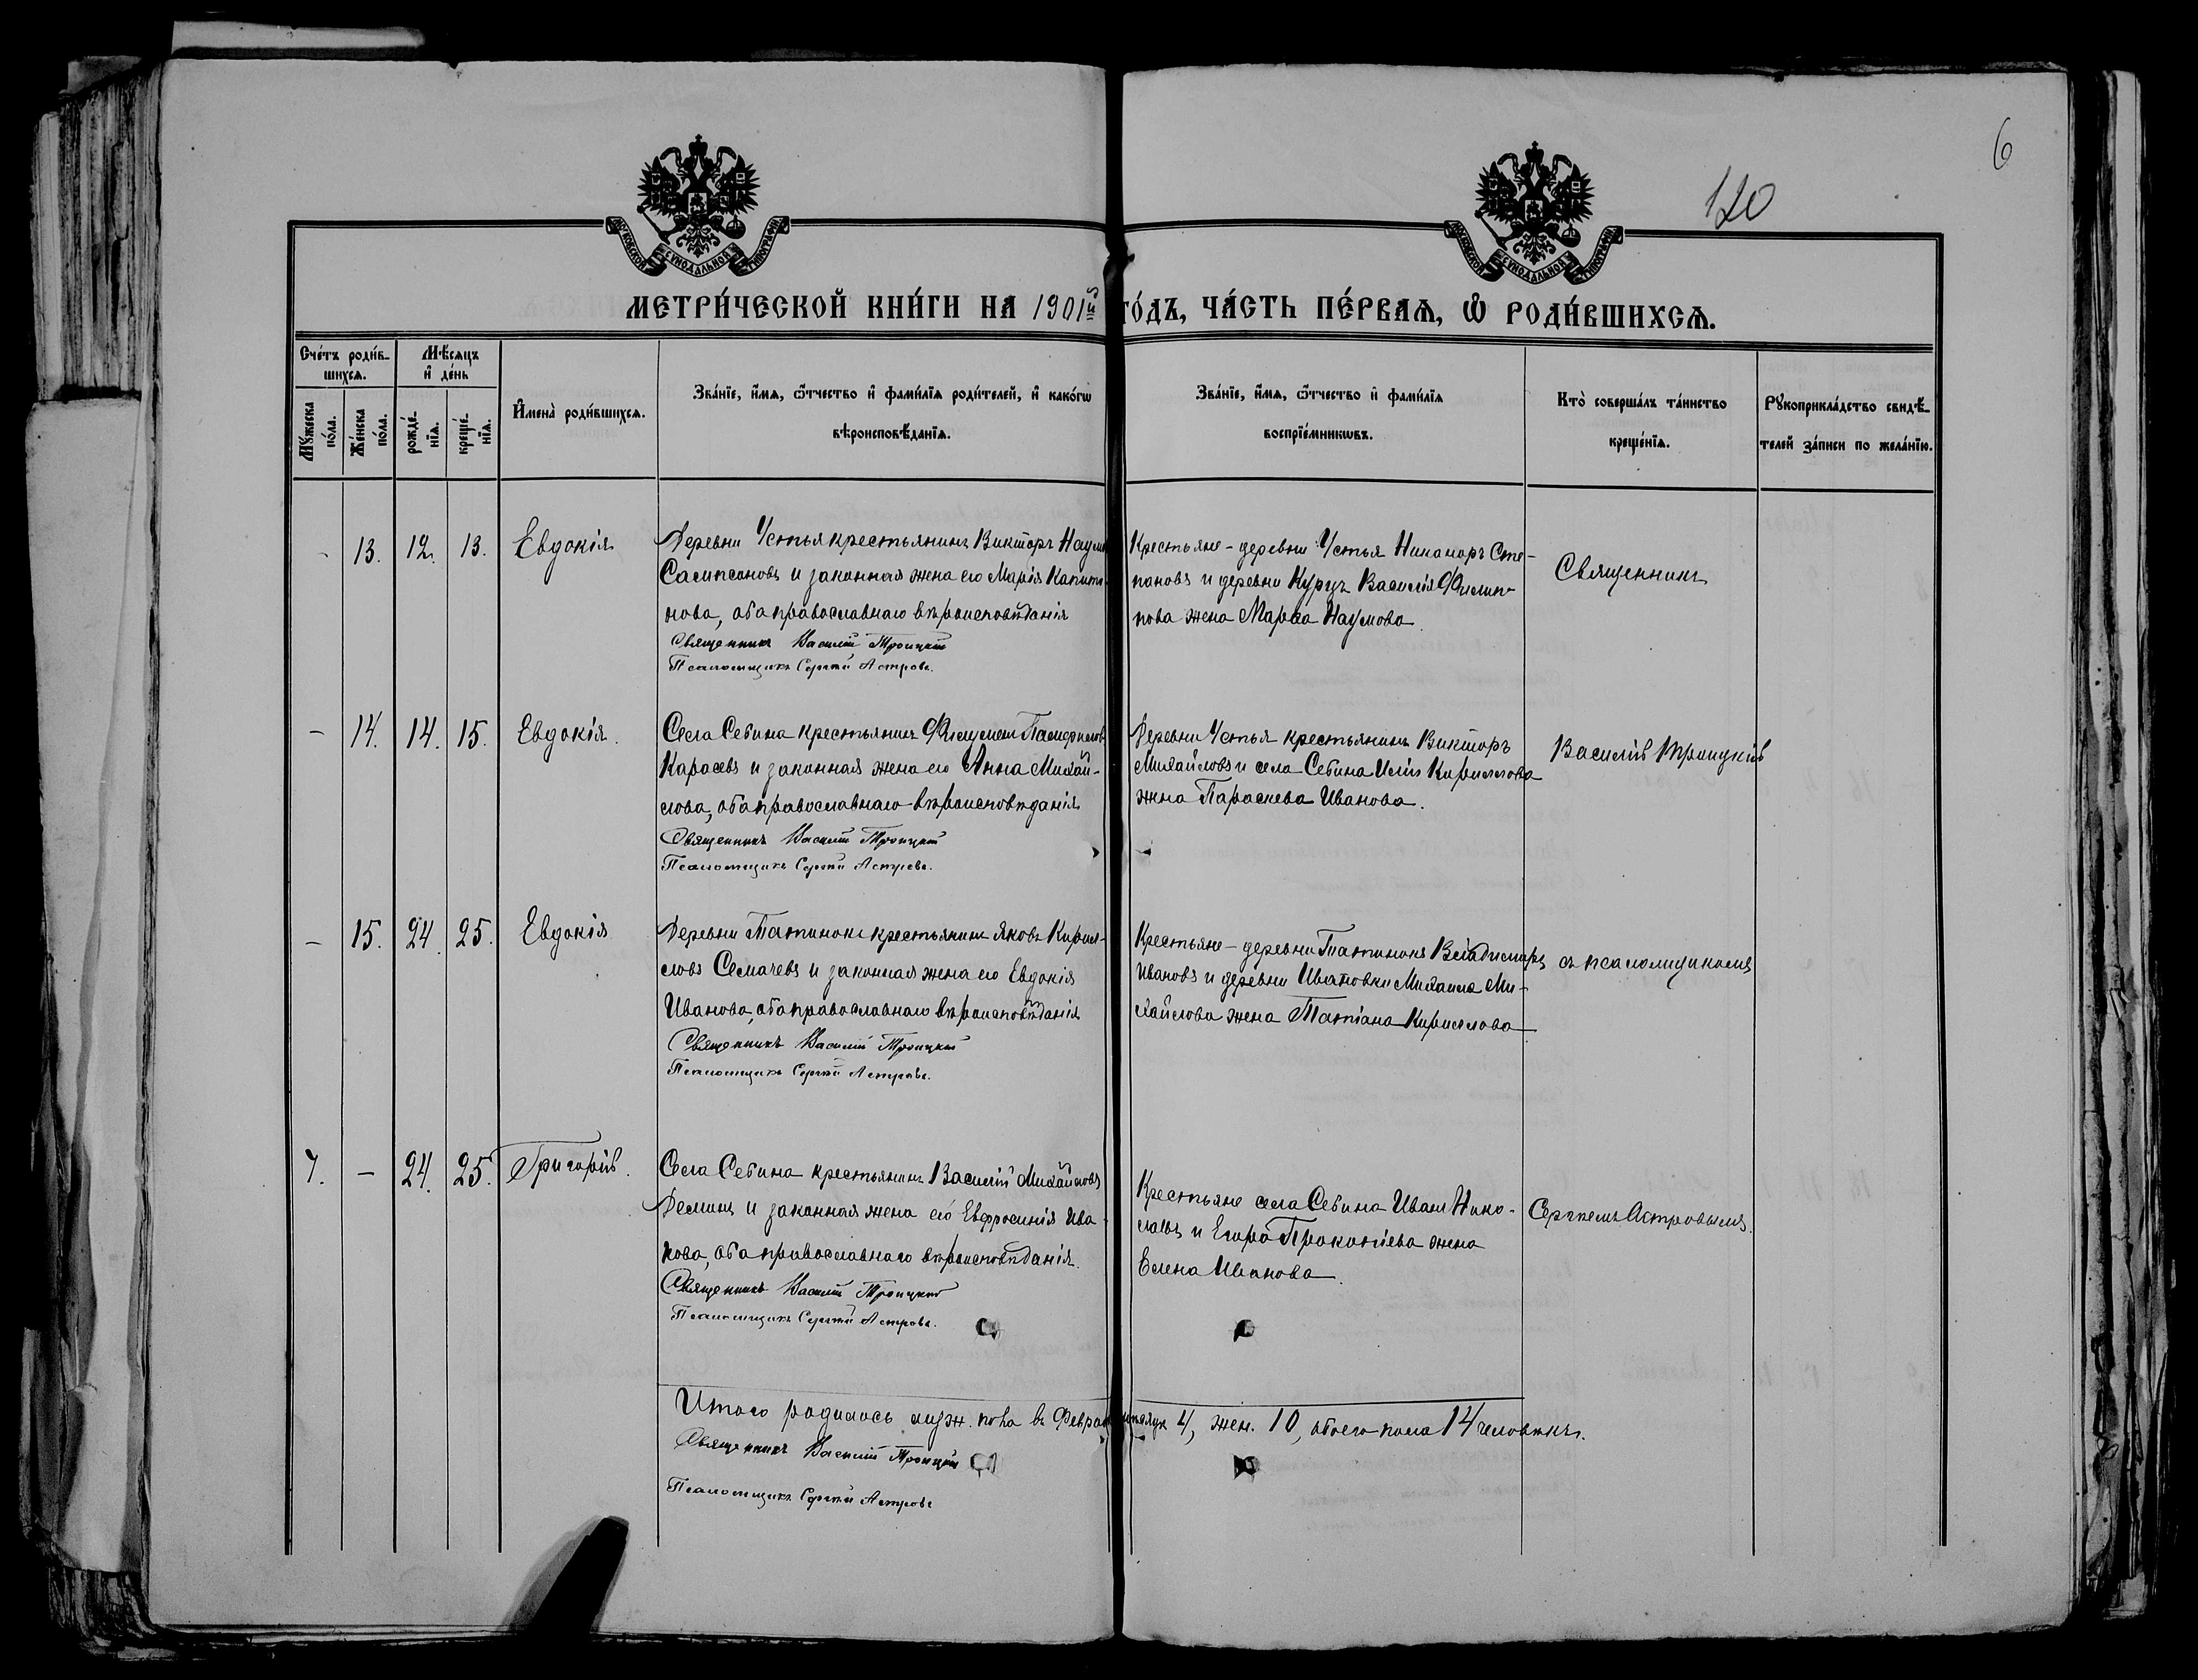 6
120
МОСКОВСКОЙ СѴНОДАЛЬНОЙ ТИПОГРАФІИ
МОСКОВСКОЙ СѴНОДАЛЬНОЙ ТИПОГРАФІИ
МЕТРИ́ЧЕСКОЙ КНИ́ГИ НА 1901ый ГО́ДЪ, ЧА́СТЬ ПЕ́РВАѦ, Ѡ҆ РОДИ́ВШИХСѦ.
Сче́тъ роди́в-
шихсѧ.
Мѣ́сѧцъ
и҆ де́нь
Мꙋ́жеска
по́ла.
Же́нска
по́ла.
рожде́-
нїѧ.
креще́-
нїѧ.
И҆мена̀ роди́вшихсѧ.
Зва́нїе, и҆́мѧ, ѻ҆́тчество и҆ фами́лїѧ роди́телей, и҆ како́гѡ
вѣроисповѣ́данїѧ.
Зва́нїе, и҆́мѧ, ѻ҆́тчество и҆ фами́лїѧ
воспрїе́мникѡвъ.
Кто̀ соверша́лъ та́инство
креще́нїѧ.
Рꙋкоприкла́дство свидѣ́-
телей за́писи по жела́нїю.
- 13. 12. 13. Евдокія
Деревни Устья крестьянинъ Викторъ Наумо
Самсоновъ и законная жена его Марія Капито
нова, оба православнаго вѣроисповѣданія
Священникъ Василій Троицкій
Псаломщикъ Сергѣй Астровъ.
Крестьяне - деревни Устья Никаноръ Сте-
пановъ и деревни Курцъ Василія Филип-
пова жена Марѳа Наумова.
Священникъ
- 14. 14. 15. Евдокія.
Села Себина крестьянинъ Филимонъ Памфиловъ
Карасевъ и законная жена его Анна Михай-
лова, оба православнаго вѣроисповѣданія
Священникъ Василій Троицкій
Псаломщикъ Сергѣй Астровъ.
Деревни Устья крестьянинъ Викторъ
Михайловъ и села Себина Иліи Кириллова
жена Параскева Иванова.
Василій Троицкій
- 15. 24 25. Евдокія
Деревни Татинокъ крестьянинъ Яковъ Кирил-
ловъ Семачевъ и законная жена его Евдокія
Иванова, оба православнаго вѣроисповѣданія
Священникъ Василій Троицкій
Псаломщикъ Сергѣй Астровъ.
Крестьяне - деревни Татинокъ Владимиръ
Ивановъ и деревни Ивановки Михаила Ми-
хайлова жена Татіана Кириллова
съ псаломщикомъ
7. - 24. 25. Григорій.
Села Себина крестьянинъ Василій Михайловъ
Деминъ и законная жена его Евфросинія Ива-
нова, оба православнаго вѣроисповѣданія.
Священникъ Василій Троицкій
Псаломщикъ Сергѣй Астровъ.
Крестьяне села Себина Иванъ Нико-
лаевъ и Егора Прокопіева жена
Елена Иванова.
Сергѣемъ Астровымъ.
Итого родилось муж. пола въ Феврал 4, жен. 10, обоего пола 14 человѣкъ.
Священникъ Василій Троицкій
Псаломщикъ Сергѣй Астровъ